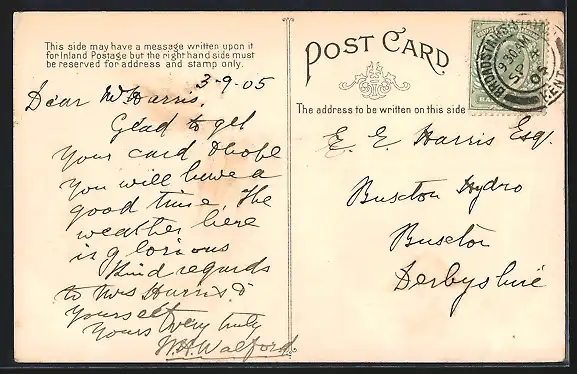 This side may have a message written upon it
for Inland Postage but the right hand side must
be reserved for address and stamp only.
3-9-05
Dear Mr Harris,
Glad to get
your card & hope
you will have a
good time, The
weather here
is glorious
Kind regards
to Mrs Harris &
yourself
Yours very truly
W.H. Walford
POST CARD
The address to be written on this side
E. E. Harris Esq.
Buxton Hydro
Buxton
Derbyshire
BROADSTAIRS
KENT
9 30 AM
SP 4
05